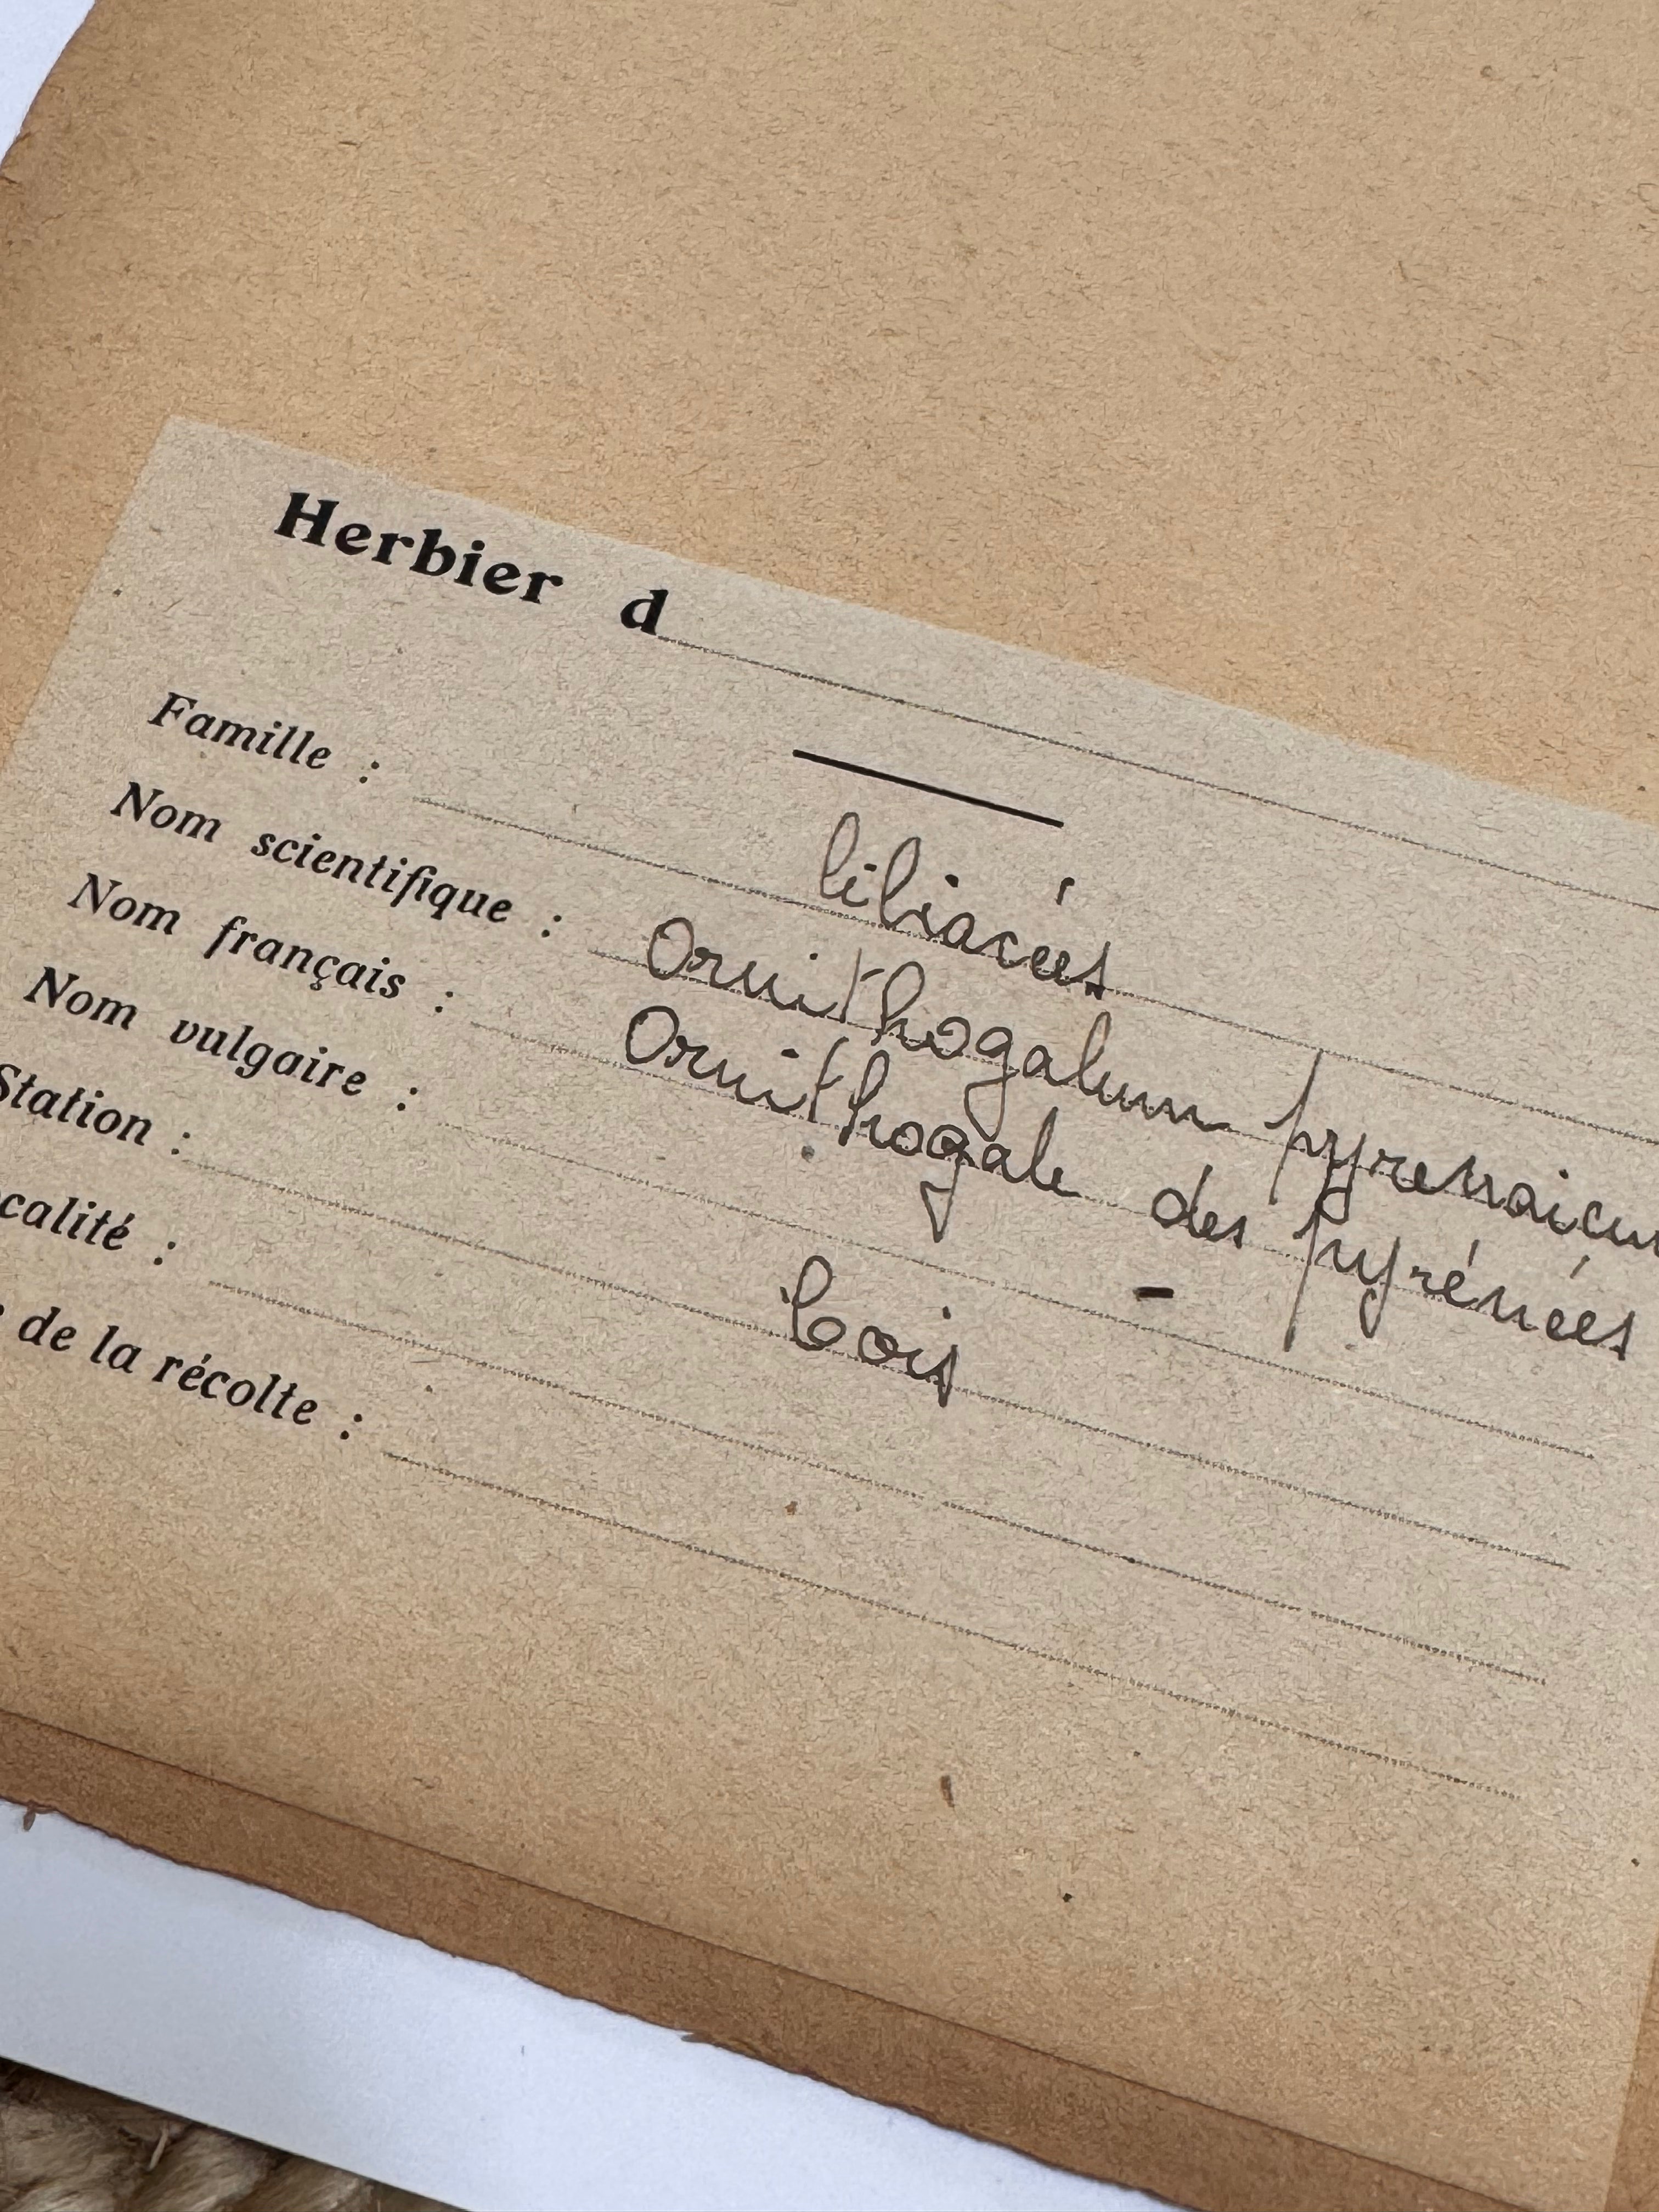 Herbier d
Famille : liliacées
Nom scientifique : Ornithogalum pyrenaicu
Nom français : Ornithogale des pyrénées
Nom vulgaire : -
Station : bois
calité :
de la récolte :